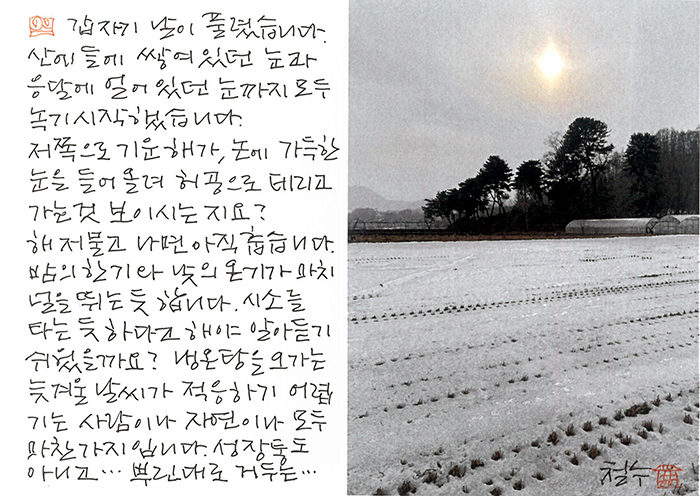 갑자기 날이 풀렸습니다.
산에 들에 쌓여 있던 눈과
응달에 얼어 있던 눈까지 모두
녹기 시작했습니다.
저쪽으로 기운 해가, 논에 가득한
눈을 들어올려 허공으로 데리고
가는 것 보이시는지요?
해 저물고 나면 아직 춥습니다.
밤의 한기와 낮의 온기가 마치
널을 뛰는 듯 합니다. 시소를
타는 듯 하다고 해야 알아듣기
쉬웠을까요? 냉온탕을 오가는
늦겨울 날씨가 적응하기 어렵
기는 사람이나 자연이나 모두
마찬가지입니다. 성장통도
아니고… 뿌린대로 거두는…
철수